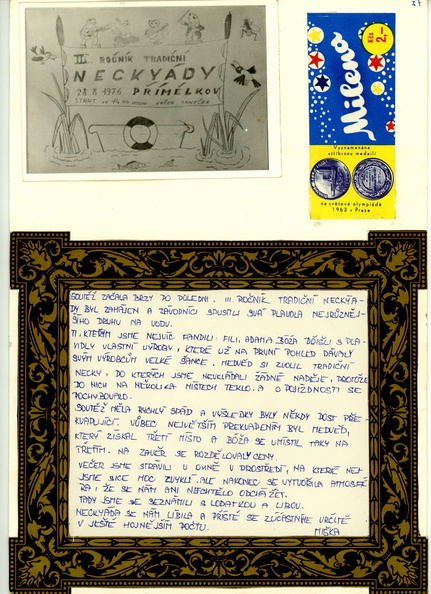 27
III. ROČNÍK TRADIČNÍ
NECKYÁDY
28. 8. 1976 PŘIMĚLKOV
START VE 14.00
Kčs 2,-
Milena
Vyznamenáno
stříbrnou medailí
na světové olympiádě
1963 v Praze
SOUTĚŽ ZAČALA BRZY PO POLEDNI. III. ROČNÍK TRADIČNÍ NECKYÁ-
DY BYL ZAHÁJEN A ZÁVODNÍCI SPUSTILI SVÁ PLAVIDLA NEJRŮZNĚJ-
ŠÍHO DRUHU NA VODU.
TI, KTERÝM JSME NEJVÍC FANDILI: FILI, ADAM A BÓŽA S PLA-
VIDLY VLASTNÍ VÝROBY, KTERÉ UŽ NA PRVNÍ POHLED DÁVALY
SVÝM VÝROBCŮM VELKÉ ŠANCE. MEDVĚD SI ZVOLIL TRADIČNÍ
NECKY, DO KTERÝCH JSME NEVKLÁDALI ŽÁDNÉ NADĚJE, PROTOŽE
DO NICH NA NĚKOLIKA MÍSTECH TEKLO. A O POJÍZDNOSTI SE
POCHYBOVALO.
SOUTĚŽ MĚLA RYCHLÝ SPÁD A VÝSLEDKY BYLY NĚKDY DOST PŘE-
KVAPUJÍCÍ. VŮBEC NEJVĚTŠÍM PŘEKVAPENÍM BYL MEDVĚD,
KTERÝ ZÍSKAL TŘETÍ MÍSTO A BÓŽA SE UMÍSTIL TAKY NA
TŘETÍM. NA ZÁVĚR SE ROZDĚLOVALY CENY.
VEČER JSME STRÁVILI U OHNĚ V PROSTŘEDÍ, NA KTERÉ NEJ-
JSME SICE MOC ZVYKLÍ. ALE NAKONEC SE VYTVOŘILA ATMOSFÉ-
RA, ŽE SE NÁM ANI NECHTĚLO ODCHÁZET.
TADY JSME SE SEZNÁMILI S LODATKOU A LIBOU.
NECKYÁDA SE NÁM LÍBILA A PŘÍŠTĚ SE ZÚČASTNÍME URČITĚ
V JEŠTĚ HOJNĚJŠÍM POČTU.
MIŠKA